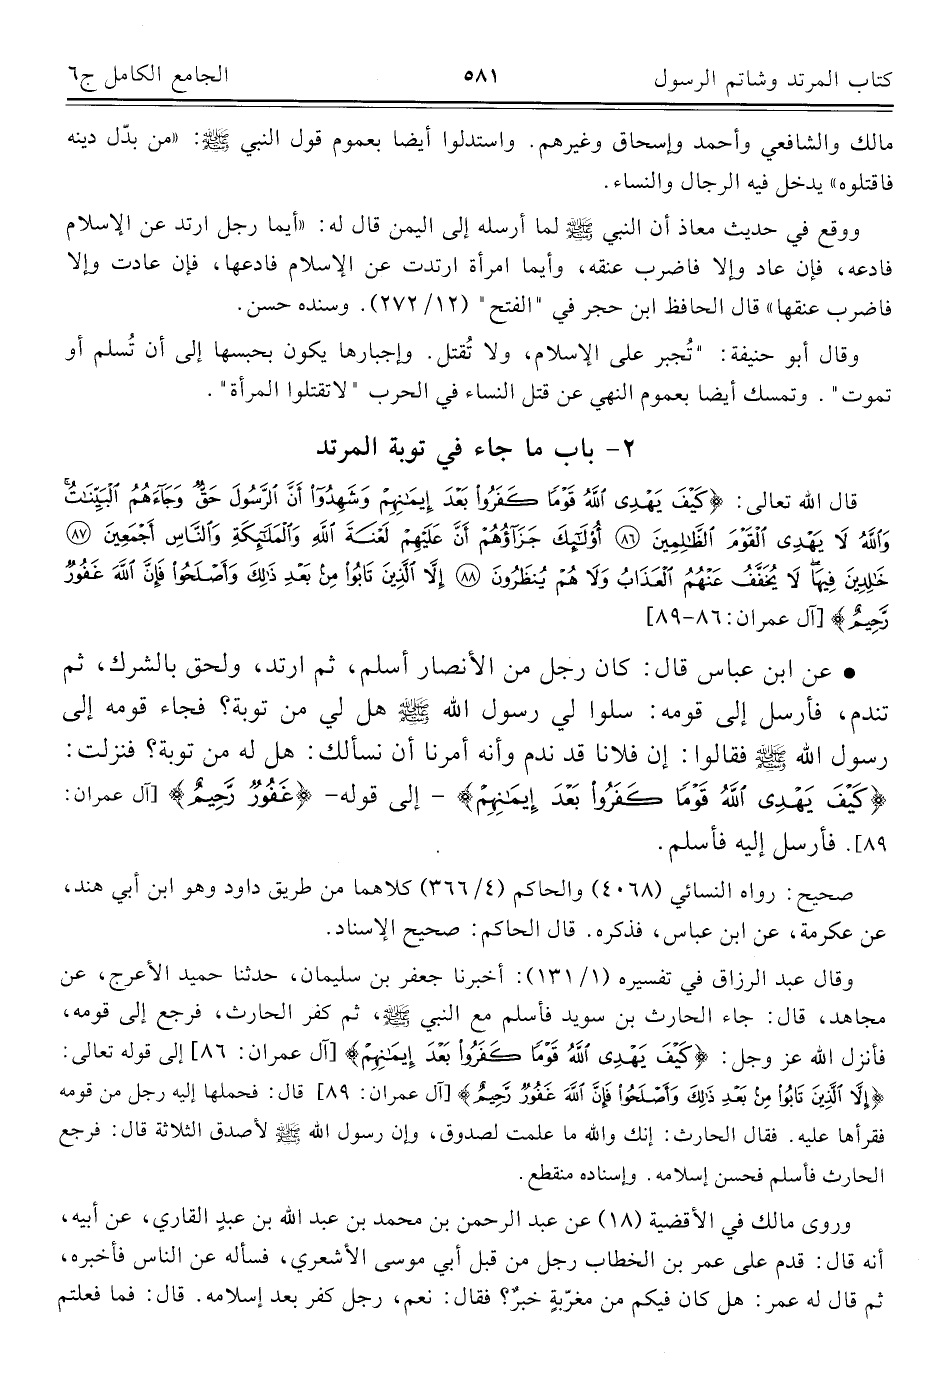 كتاب المرتد وشاتم الرسول ٥٨١ الجامع الكامل ج٦
مالك والشافعي وأحمد وإسحاق وغيرهم. واستدلوا أيضا بعموم قول النبي ﷺ: «من بدّل دينه
فاقتلوه» يدخل فيه الرجال والنساء.
ووقع في حديث معاذ أن النبي ﷺ لما أرسله إلى اليمن قال له: «أيما رجل ارتد عن الإسلام
فادعه، فإن عاد وإلا فاضرب عنقه، وأيما امرأة ارتدت عن الإسلام فادعها، فإن عادت وإلا
فاضرب عنقها» قال الحافظ ابن حجر في "الفتح" (١٢/ ٢٧٢). وسنده حسن.
وقال أبو حنيفة: "تُجبر على الإسلام، ولا تُقتل. وإجبارها يكون بحبسها إلى أن تُسلم أو
تموت". وتمسك أيضا بعموم النهي عن قتل النساء في الحرب "لاتقتلوا المرأة".
٢- باب ما جاء في توبة المرتد
قال الله تعالى: ﴿كَيْفَ يَهْدِى ٱللَّهُ قَوْمًا كَفَرُوا۟ بَعْدَ إِيمَـٰنِهِمْ وَشَهِدُوٓا۟ أَنَّ ٱلرَّسُولَ حَقٌّ وَجَآءَهُمُ ٱلْبَيِّنَـٰتُ ۚ
وَٱللَّهُ لَا يَهْدِى ٱلْقَوْمَ ٱلظَّـٰلِمِينَ ٨٦ أُو۟لَـٰٓئِكَ جَزَآؤُهُمْ أَنَّ عَلَيْهِمْ لَعْنَةَ ٱللَّهِ وَٱلْمَلَـٰٓئِكَةِ وَٱلنَّاسِ أَجْمَعِينَ ٨٧
خَـٰلِدِينَ فِيهَا لَا يُخَفَّفُ عَنْهُمُ ٱلْعَذَابُ وَلَا هُمْ يُنظَرُونَ ٨٨ إِلَّا ٱلَّذِينَ تَابُوا۟ مِنۢ بَعْدِ ذَٰلِكَ وَأَصْلَحُوا۟ فَإِنَّ ٱللَّهَ غَفُورٌ
رَّحِيمٌ﴾ [آل عمران: ٨٦-٨٩]
• عن ابن عباس قال: كان رجل من الأنصار أسلم، ثم ارتد، ولحق بالشرك، ثم
تندم، فأرسل إلى قومه: سلوا لي رسول الله ﷺ هل لي من توبة؟ فجاء قومه إلى
رسول الله ﷺ فقالوا: إن فلانا قد ندم وأنه أمرنا أن نسألك: هل له من توبة؟ فنزلت:
﴿كَيْفَ يَهْدِى ٱللَّهُ قَوْمًا كَفَرُوا۟ بَعْدَ إِيمَـٰنِهِمْ﴾ - إلى قوله- ﴿غَفُورٌ رَّحِيمٌ﴾ [آل عمران:
٨٩]. فأرسل إليه فأسلم.
صحيح: رواه النسائي (٤٠٦٨) والحاكم (٤/ ٣٦٦) كلاهما من طريق داود وهو ابن أبي هند،
عن عكرمة، عن ابن عباس، فذكره. قال الحاكم: صحيح الإسناد.
وقال عبد الرزاق في تفسيره (١/ ١٣١): أخبرنا جعفر بن سليمان، حدثنا حميد الأعرج، عن
مجاهد، قال: جاء الحارث بن سويد فأسلم مع النبي ﷺ، ثم كفر الحارث، فرجع إلى قومه،
فأنزل الله عز وجل: ﴿كَيْفَ يَهْدِى ٱللَّهُ قَوْمًا كَفَرُوا۟ بَعْدَ إِيمَـٰنِهِمْ﴾ [آل عمران: ٨٦] إلى قوله تعالى:
﴿إِلَّا ٱلَّذِينَ تَابُوا۟ مِنۢ بَعْدِ ذَٰلِكَ وَأَصْلَحُوا۟ فَإِنَّ ٱللَّهَ غَفُورٌ رَّحِيمٌ﴾ [آل عمران: ٨٩] قال: فحملها إليه رجل من قومه
فقرأها عليه. فقال الحارث: إنك والله ما علمت لصدوق، وإن رسول الله ﷺ لأصدق الثلاثة قال: فرجع
الحارث فأسلم فحسن إسلامه. وإسناده منقطع.
وروى مالك في الأقضية (١٨) عن عبد الرحمن بن محمد بن عبد الله بن عبدٍ القاري، عن أبيه،
أنه قال: قدم على عمر بن الخطاب رجل من قبل أبي موسى الأشعري، فسأله عن الناس فأخبره،
ثم قال له عمر: هل كان فيكم من مغرّبةٍ خبرٌ؟ فقال: نعم، رجل كفر بعد إسلامه. قال: فما فعلتم